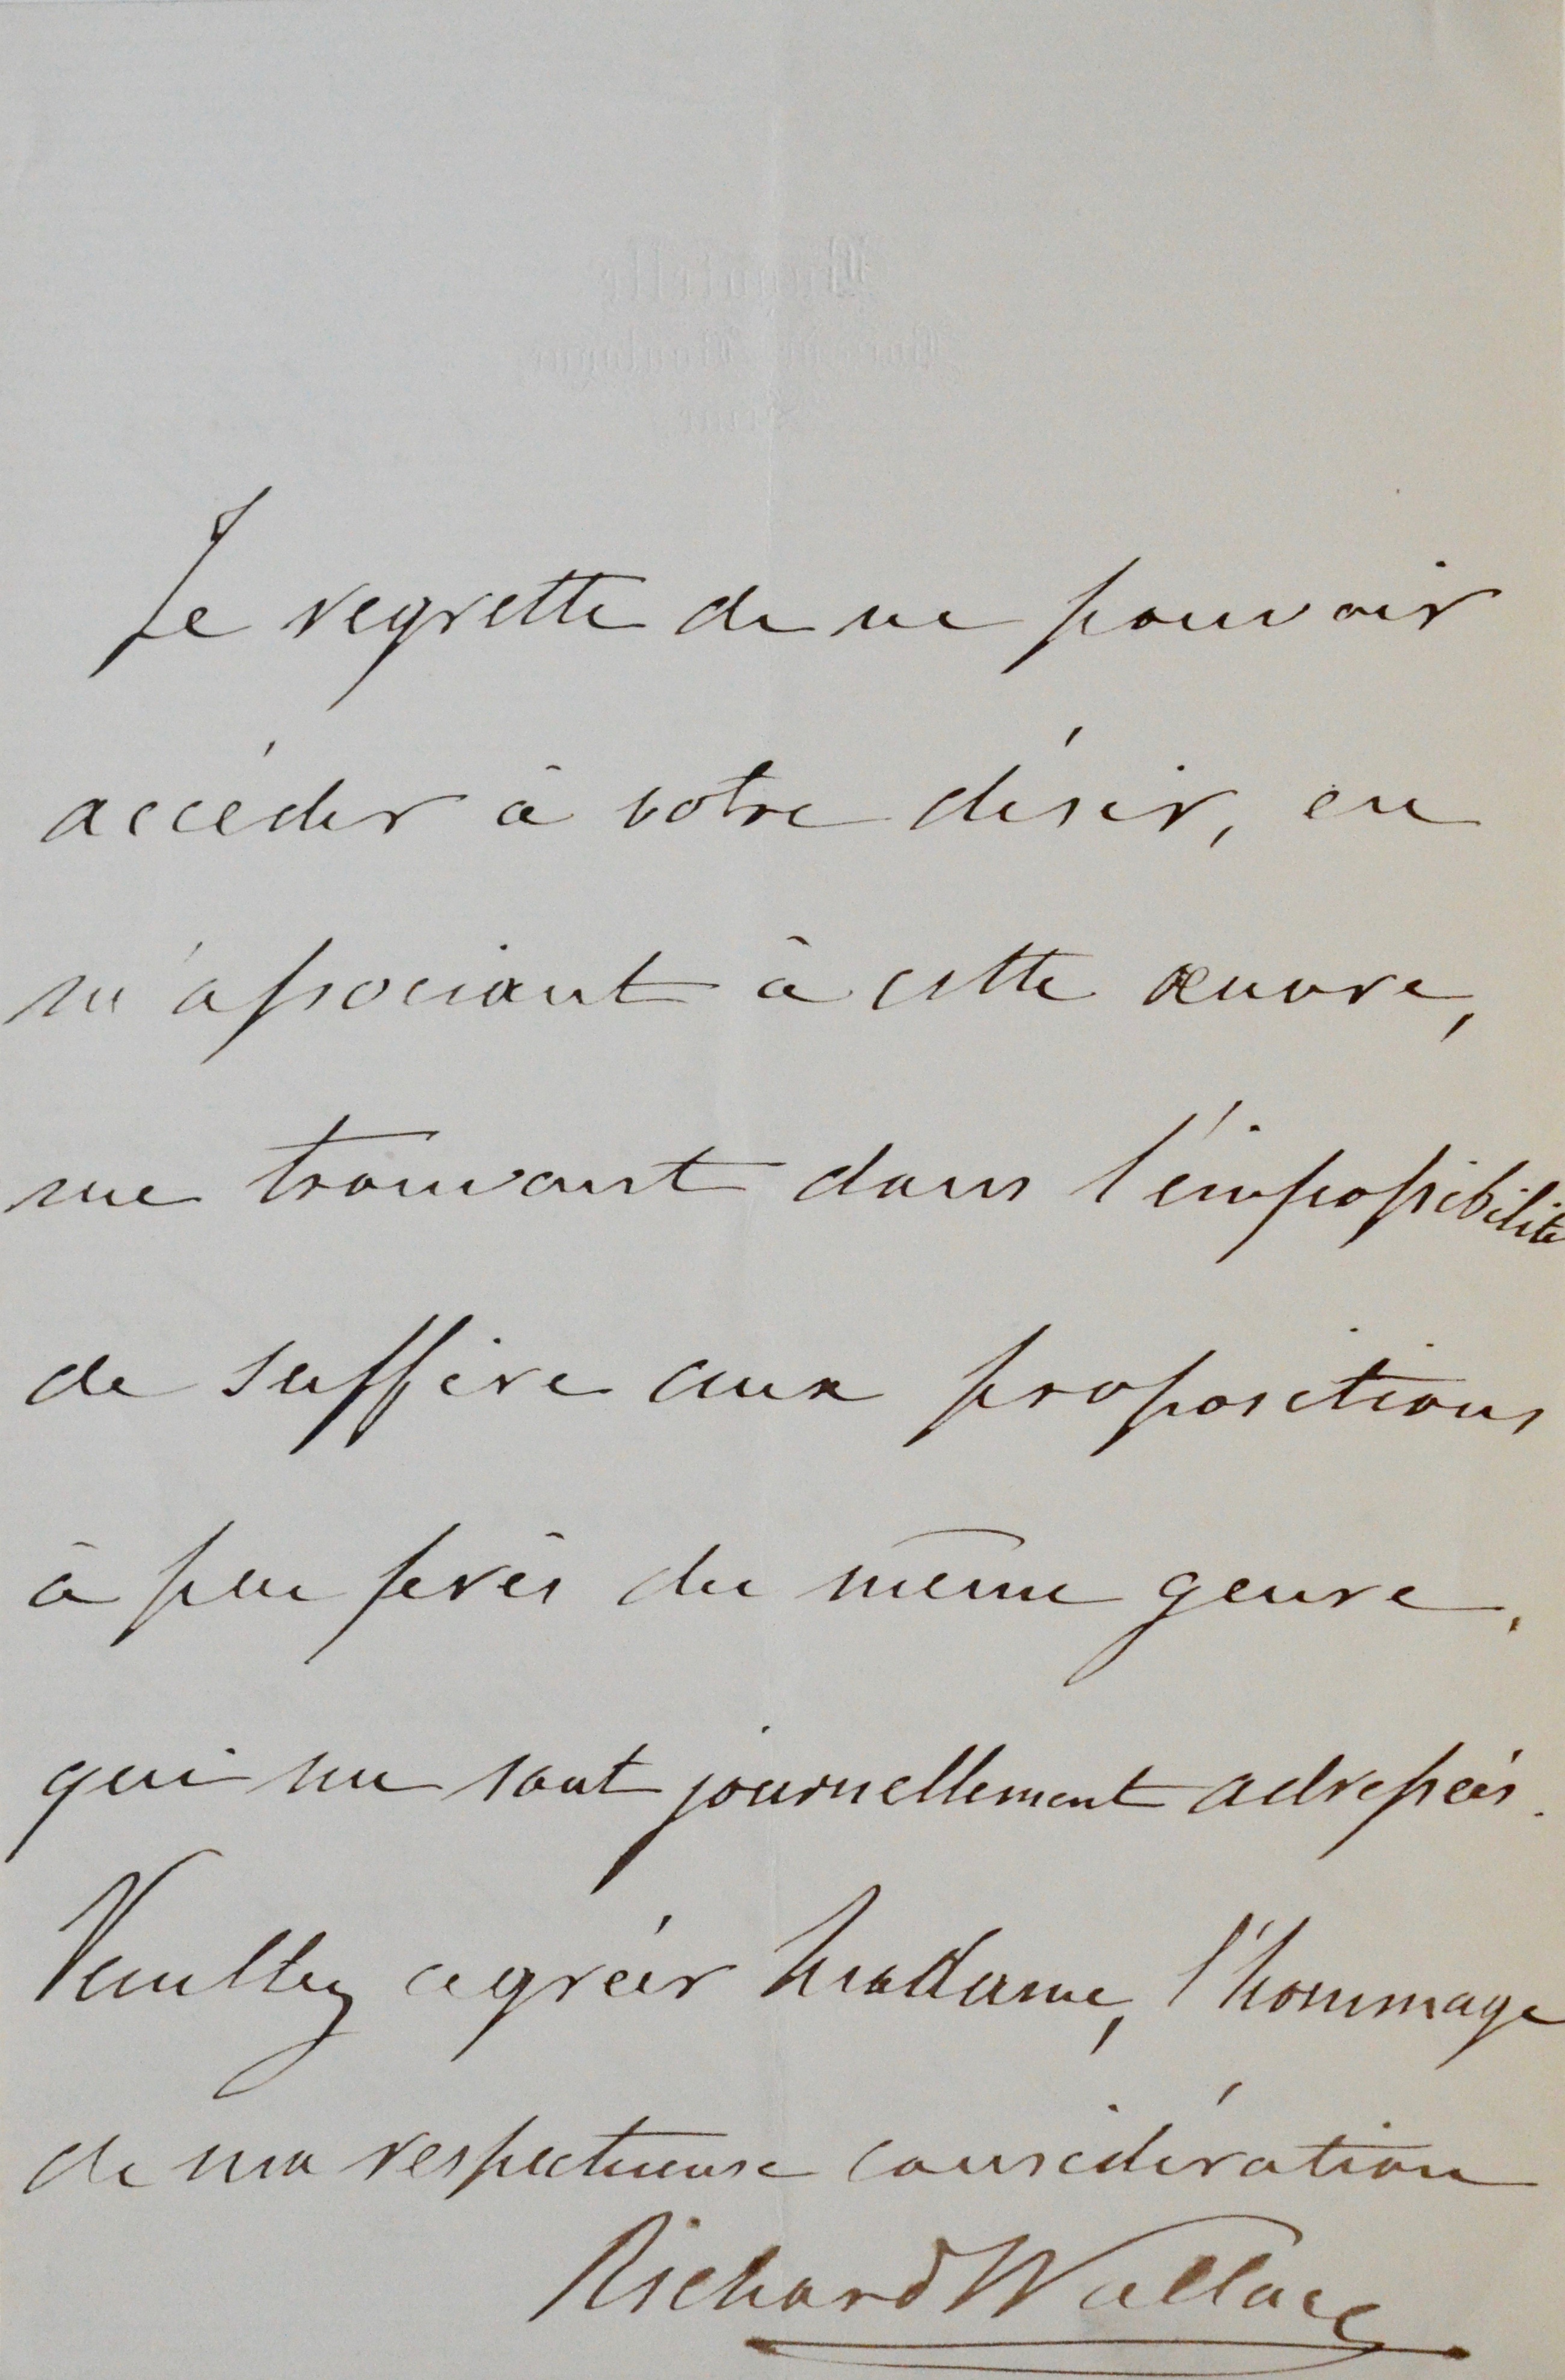 Bagatelle
Bois de Boulogne
Je regrette de ne pouvoir
accéder à votre désir, en
m'associant à cette œuvre,
me trouvant dans l'impossibilité
de suffire aux propositions
à peu près du même genre,
qui me sont journellement adressées.
Veuillez agréer Madame, l'hommage
de ma respectueuse considération
Richard Wallace